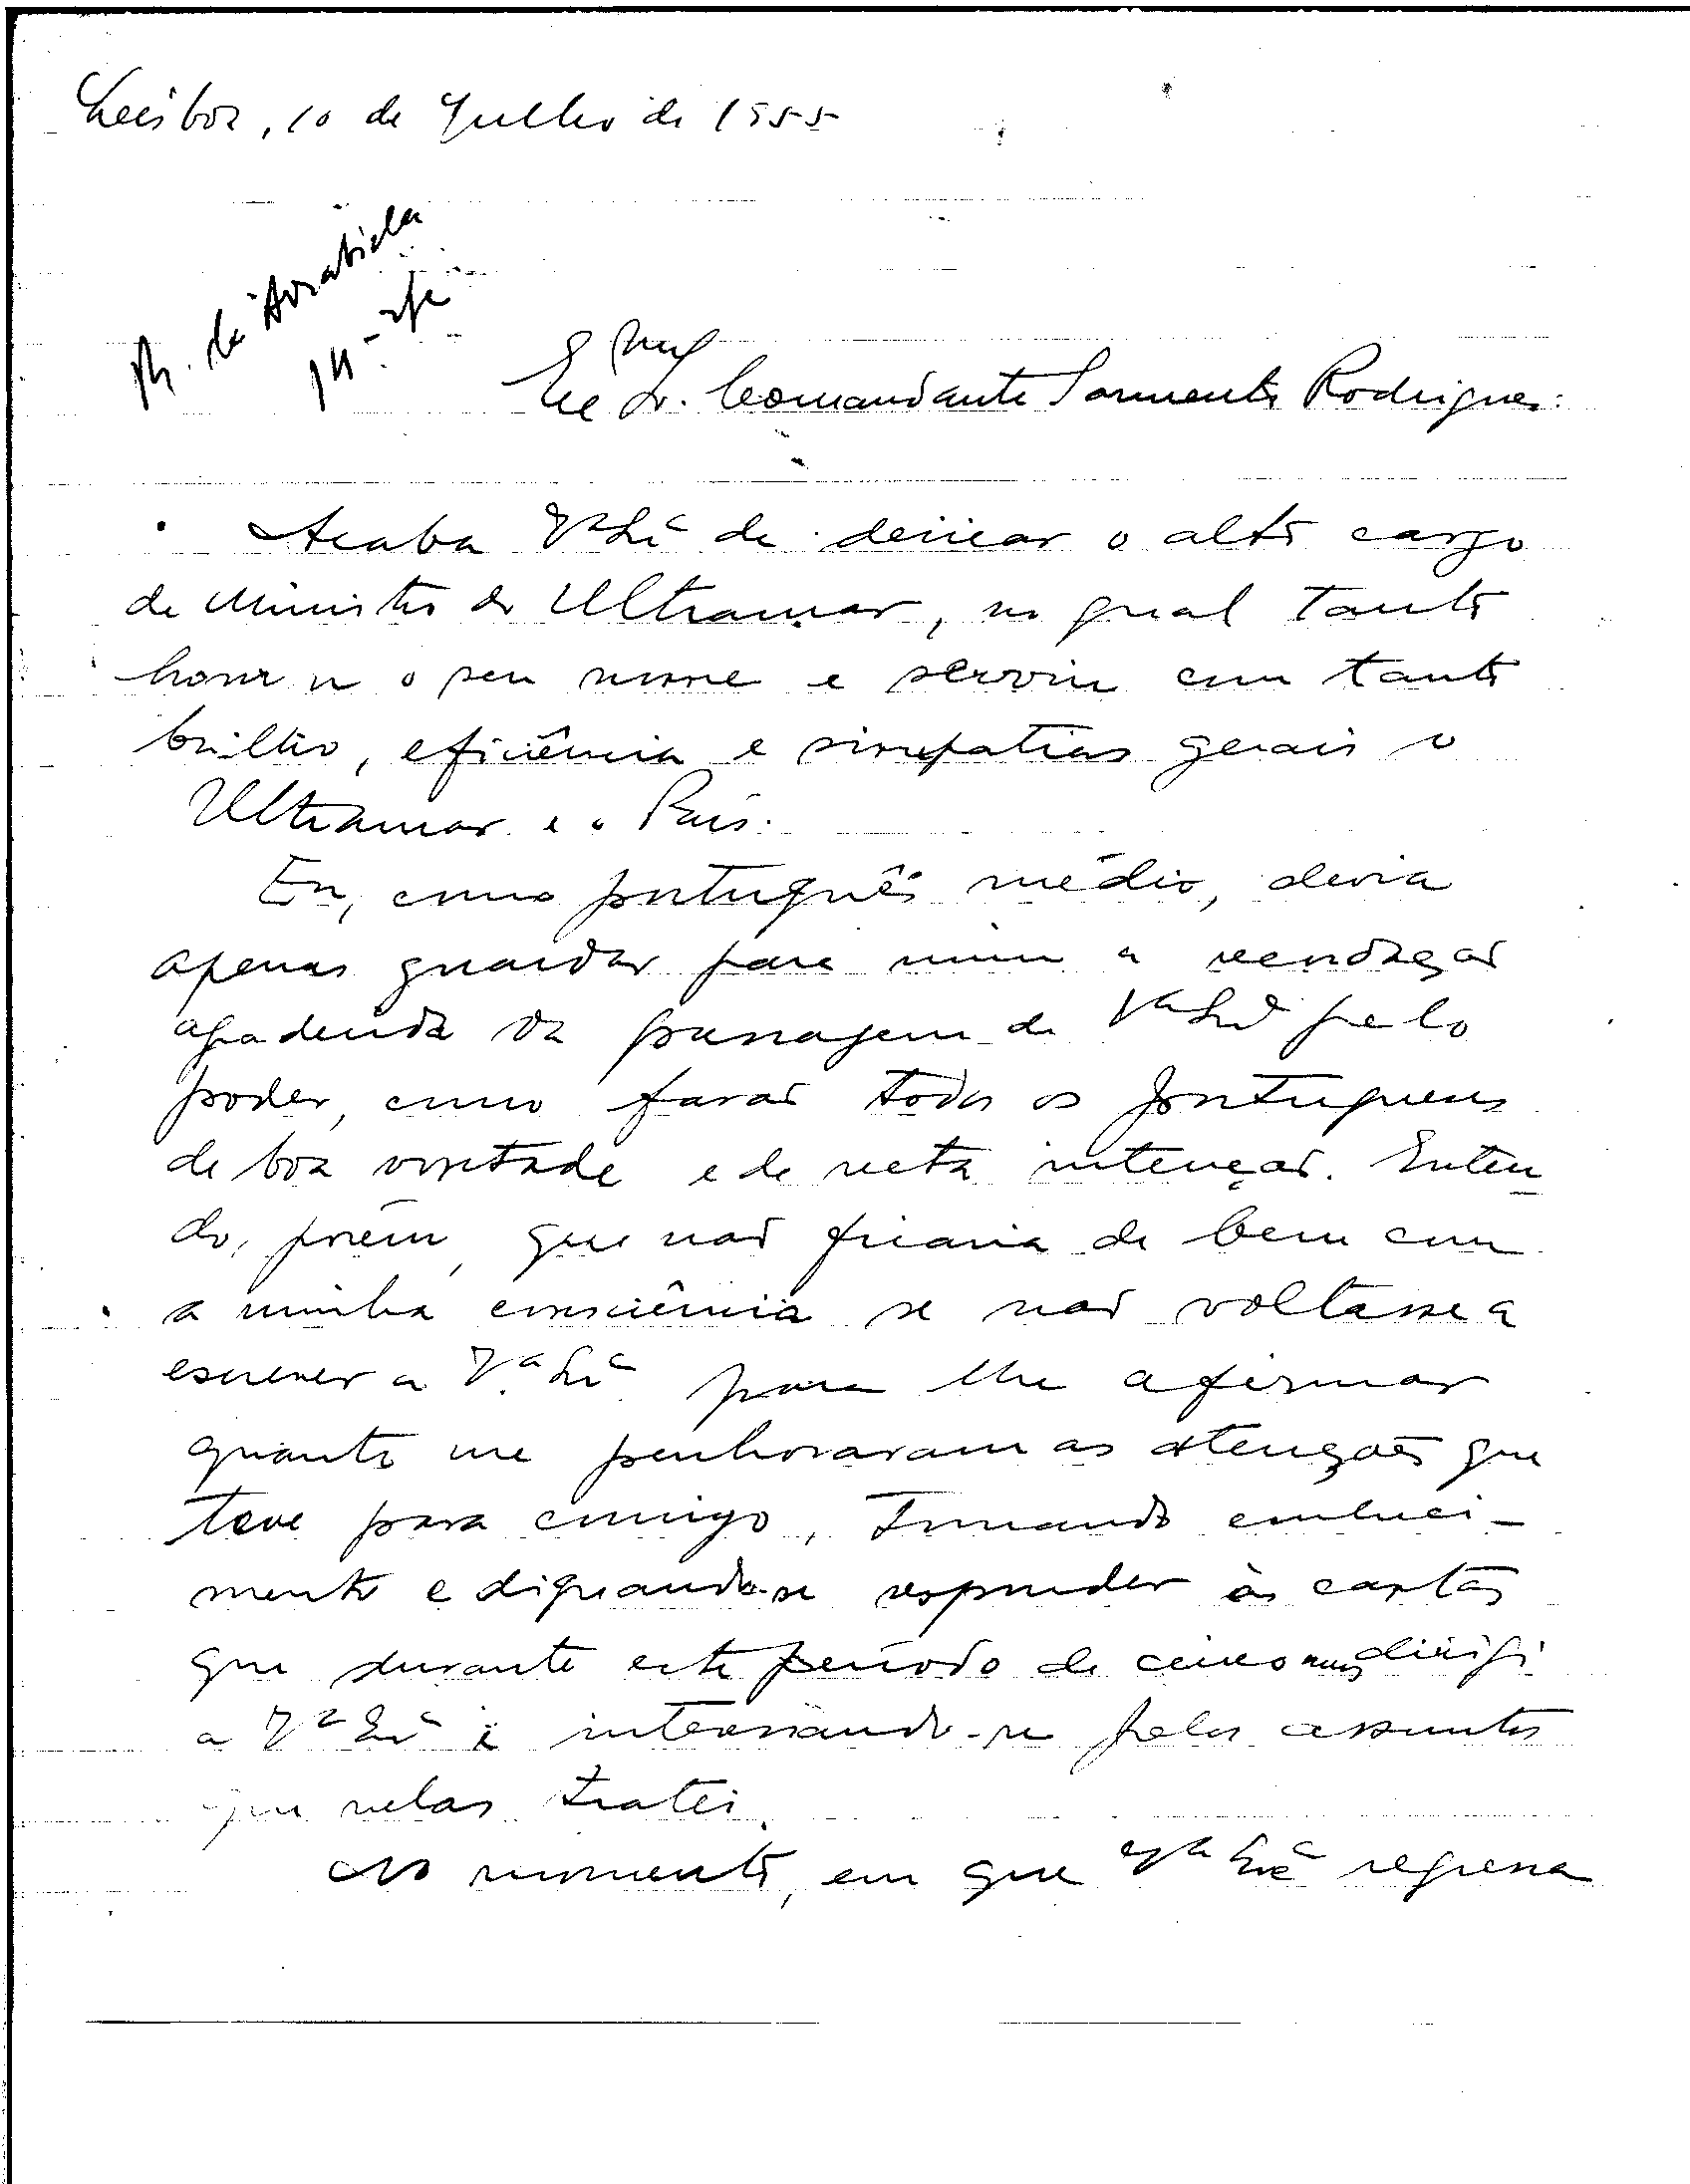 Lisboa, 10 de Julho de 1955
R. da Arrábida
14-
Ex.mo Sr. Comandante Sarmento Rodrigues:
Acaba V.ª Ex.ª de deixar o alto cargo
de Ministro do Ultramar, no qual tanto
honrou o seu nome e serviu com tanto
brilho, eficiência e simpatias gerais o
Ultramar e o País.
Eu, como português médio, devia
apenas guardar para mim a
da passagem de V.ª Ex.ª pelo
poder, como farão todos os portugueses
de boa vontade e de recta intenção. Enten
do, porém, que não ficaria de bem com
a minha consciência se não voltasse a
escrever a V.ª Ex.ª para lhe afirmar
quanto me penhoraram as atenções que
teve para comigo, tomando conheci-
mento e dignando-se responder às cartas
que durante este período de cinco anos dirigi
a V.ª Ex.ª e interessando-se pelos assuntos
que nelas tratei.
No momento, em que V.ª Ex.ª regressa